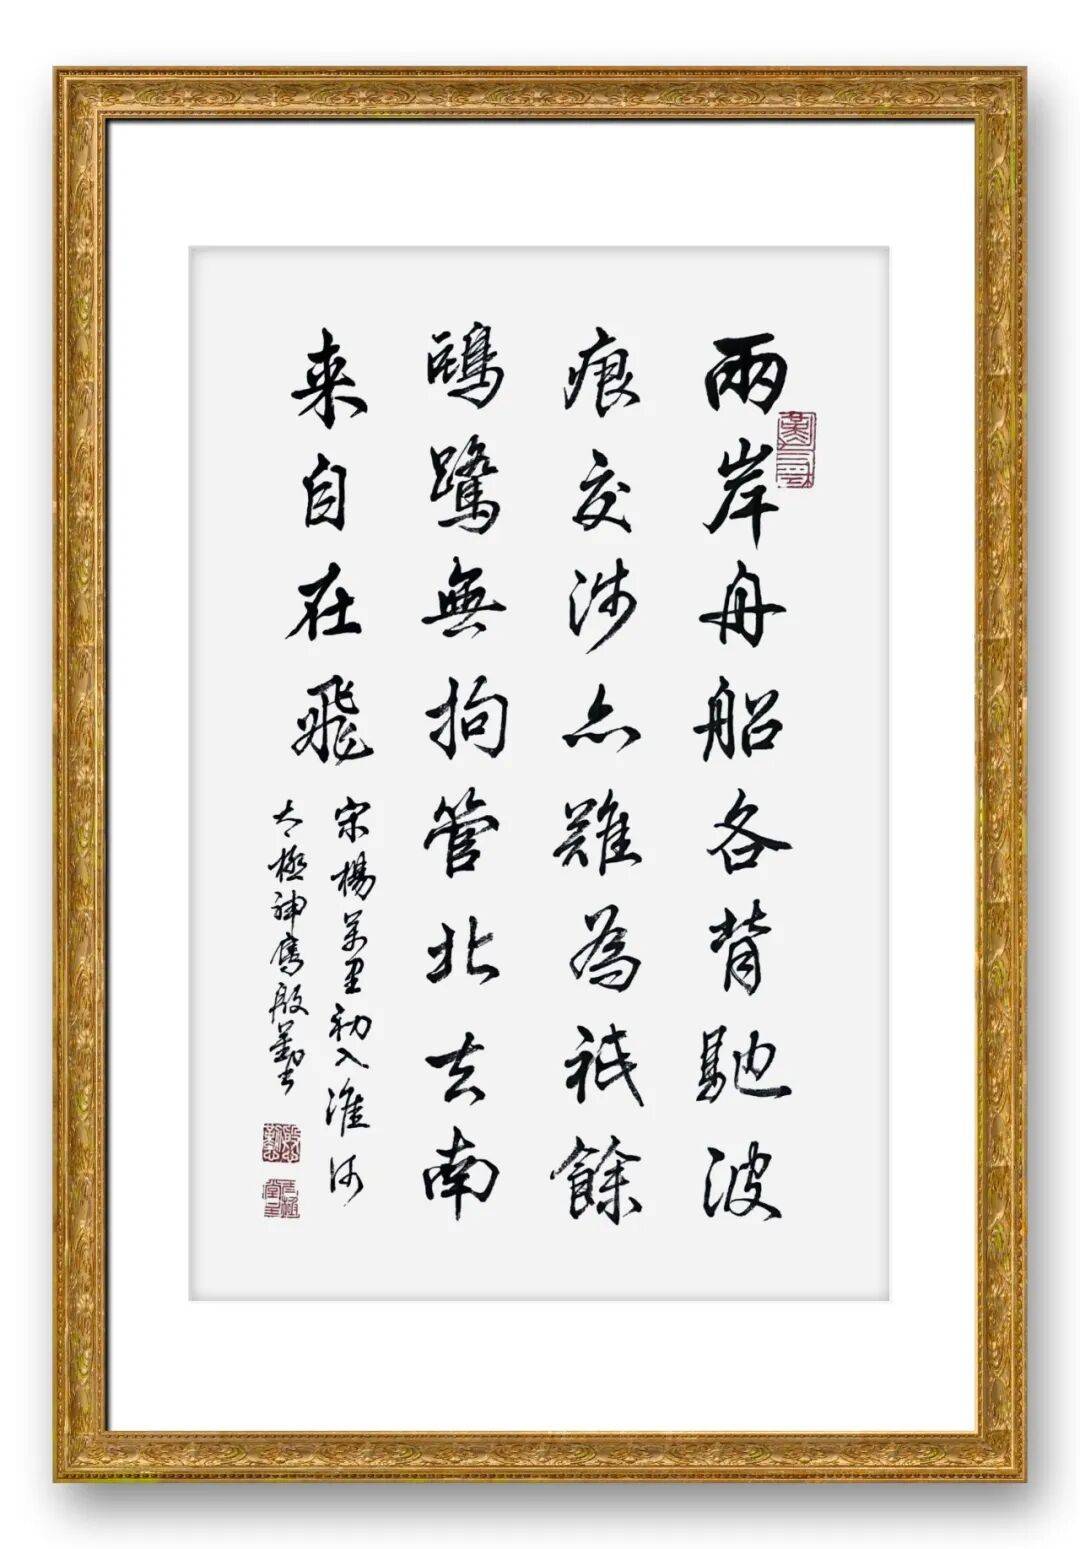 兩岸舟船各背馳波
痕交涉亦難為祇餘
鷗鷺無拘管北去南
来自在飛
宋楊萬里初入淮河
太極神鷹殷勤書